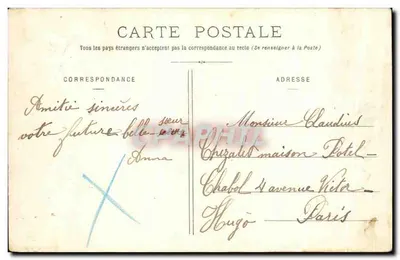 CARTE POSTALE
Tous les pays étrangers n'acceptent pas la correspondance au recto (Se renseigner à la Poste)
CORRESPONDANCE
Amitié sincères
votre future belle-sœur
Anna
ADRESSE
Monsieur Claudius
Chezalet maison Potel-
Chabol 4 avenue Victor
Hugo Paris